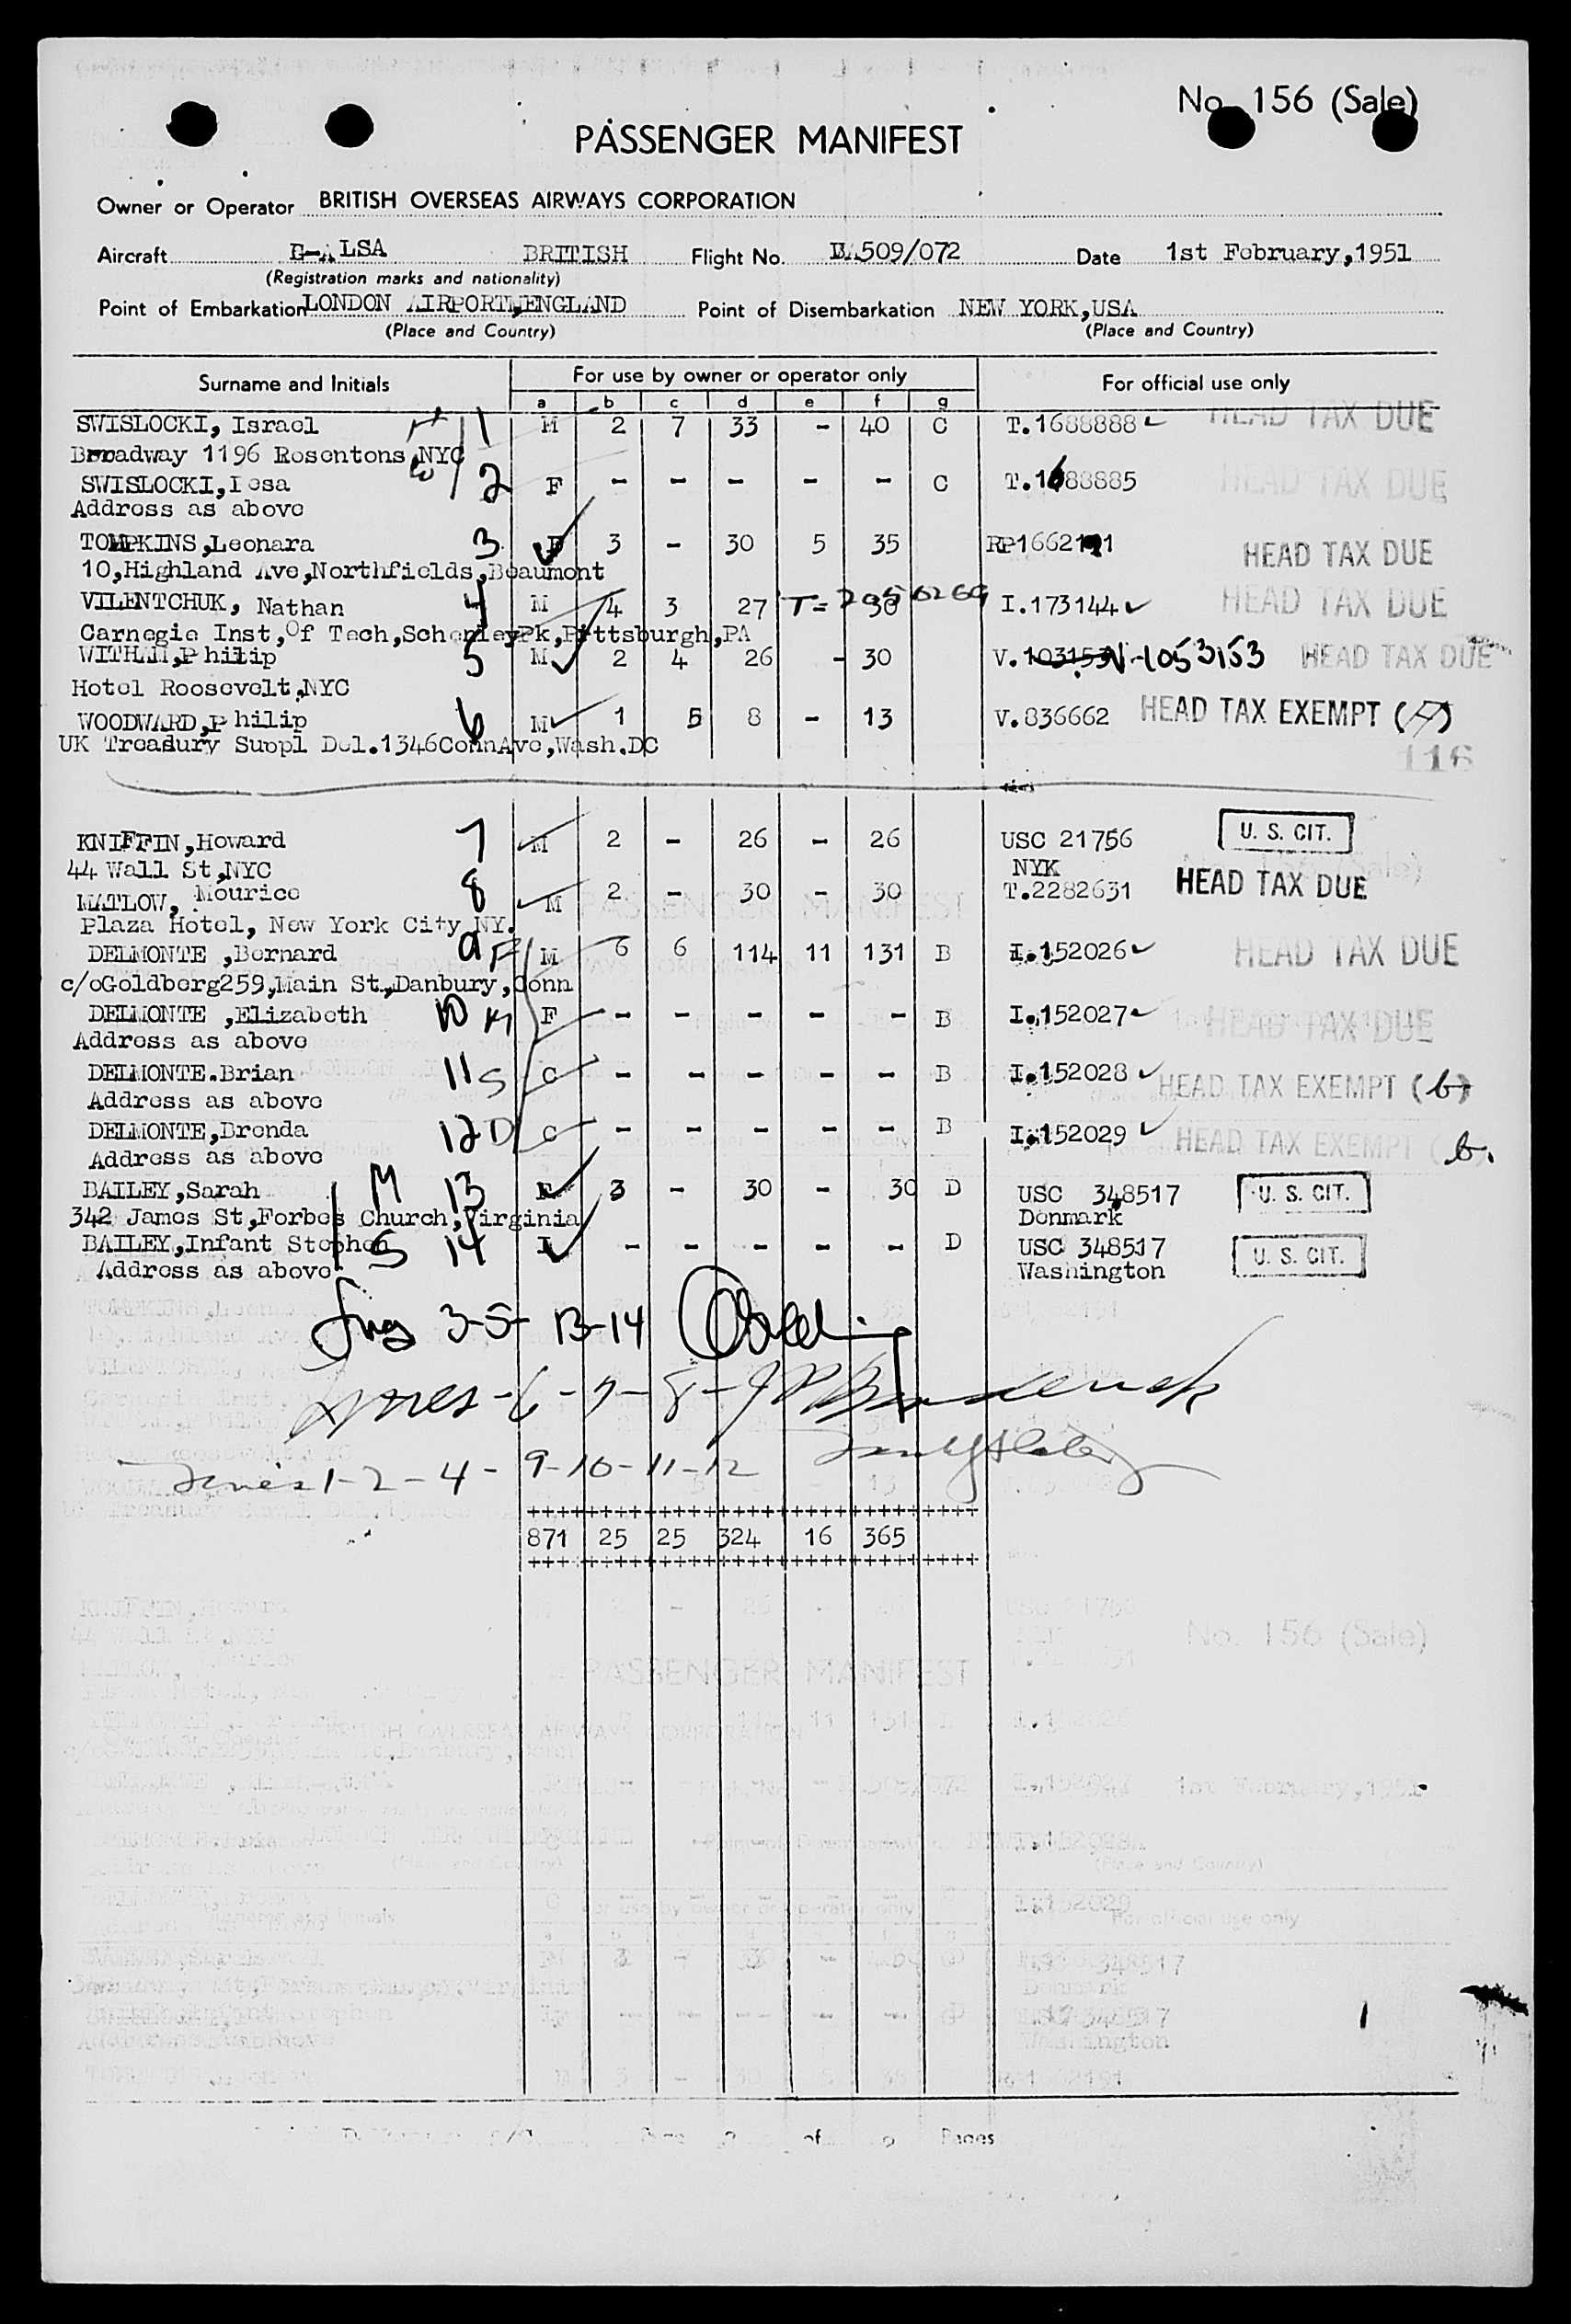 No. 156 (Sale)
PASSENGER MANIFEST
Owner or Operator BRITISH OVERSEAS AIRWAYS CORPORATION
Aircraft G-ALSA BRITISH Flight No. BA509/072 Date 1st February,1951
(Registration marks and nationality)
Point of Embarkation LONDON AIRPORT,ENGLAND Point of Disembarkation NEW YORK,USA
(Place and Country) (Place and Country)
Surname and Initials For use by owner or operator only For official use only
a b c d e f g
SWISLOCKI, Israel 1 M 2 7 33 - 40 C T.1688888 HEAD TAX DUE
Broadway 1196 Rosentons,NYC
SWISLOCKI, 2 F - - - - - C T.1688885 HEAD TAX DUE
Address as above
TOMPKINS,Leonara 3 F 3 - 30 5 35 HEAD TAX DUE
10,Highland Ave,Northfields,Beaumont
VILENTCHUK, Nathan 4 M 4 3 27 30 I.173144 HEAD TAX DUE
Carnegie Inst,Of Tech,SchenleyPk,Pittsburgh,PA
Philip 5 M 2 4 26 - 30 V.103153 V-1053153 HEAD TAX DUE
Hotel Roosevelt,NYC
WOODWARD,Philip 6 M 1 5 8 - 13 V.836662 HEAD TAX EXEMPT
UK Treasury Suppl Del.1346ConnAve,Wash.DC
116
KNIFFIN,Howard 7 M 2 - 26 - 26 USC 21756 U. S. CIT.
44 Wall St,NYC NYK
MATLOW, Mourice 8 M 2 - 30 - 30 T.2282631 HEAD TAX DUE
Plaza Hotel, New York City NY.
DELMONTE ,Bernard 9 F M 6 6 114 11 131 B I.152026 HEAD TAX DUE
c/oGoldberg259,Main St.,Danbury,Conn
DELMONTE ,Elizabeth 10 M F - - - - - B I.152027 HEAD TAX DUE
Address as above
DELMONTE.Brian 11 S C - - - - - B I.152028 HEAD TAX EXEMPT (b)
Address as above
DELMONTE,Brenda 12 D C - - - - - B I.152029 HEAD TAX EXEMPT (b.
Address as above
BAILEY,Sarah M 13 F 3 - 30 - 30 D USC 348517 U. S. CIT.
342 James St,Forbes Church,Virginia Denmark
BAILEY,Infant Stephen S 14 I - - - - - D USC 348517 U. S. CIT.
Address as above Washington
3-5- 13-14
-6-7-8-
1-2-4-9-10-11-12
++++++++++++++++++++++++++++++
871 25 25 324 16 365
++++++++++++++++++++++++++++++